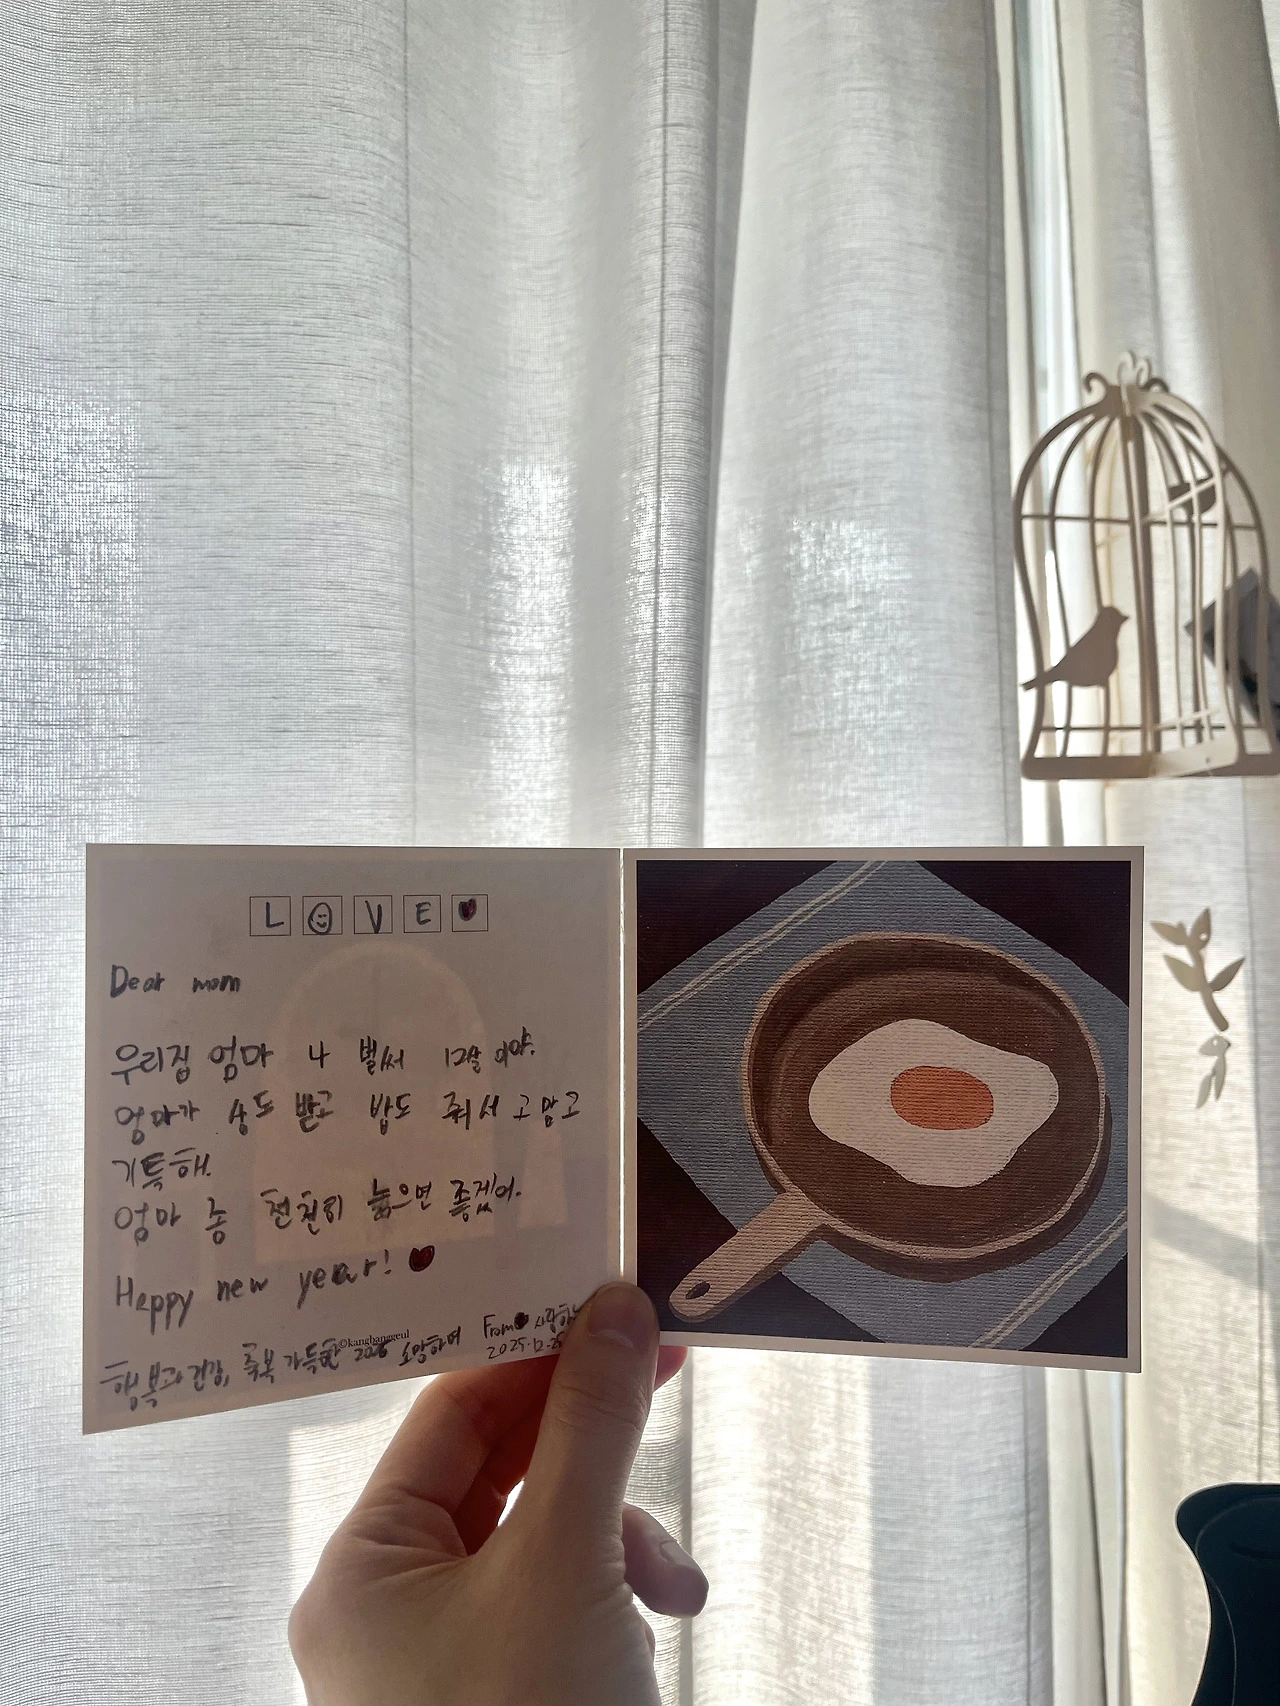 L O V E
Dear mom
우리집 엄마 나 벌써 12살이야.
엄마가 상도 받고 밥도 줘서 고맙고
기특해.
엄마 좀 천천히 늙으면 좋겠어.
Happy new year!
©kangbanggeul
행복과 건강, 축복 가득한 2026 소망하며
From 사랑하
2025.12.25